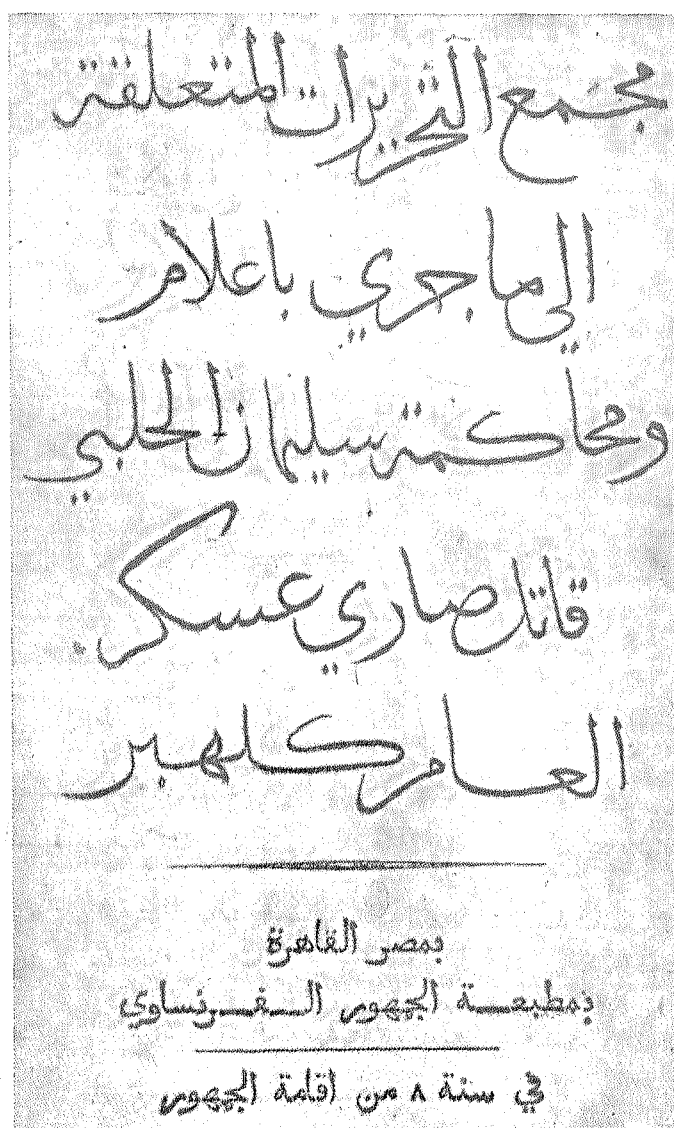 مجمع التحريرات المتعلقة
الي ما جري باعلام
ومحاكمة سليمان الحلبي
قاتل صاري عسكر
العام كلهبر
بمصر القاهرة
بمطبعة الجهور الفرنساوي
في سنة ٨ من اقامة الجهور